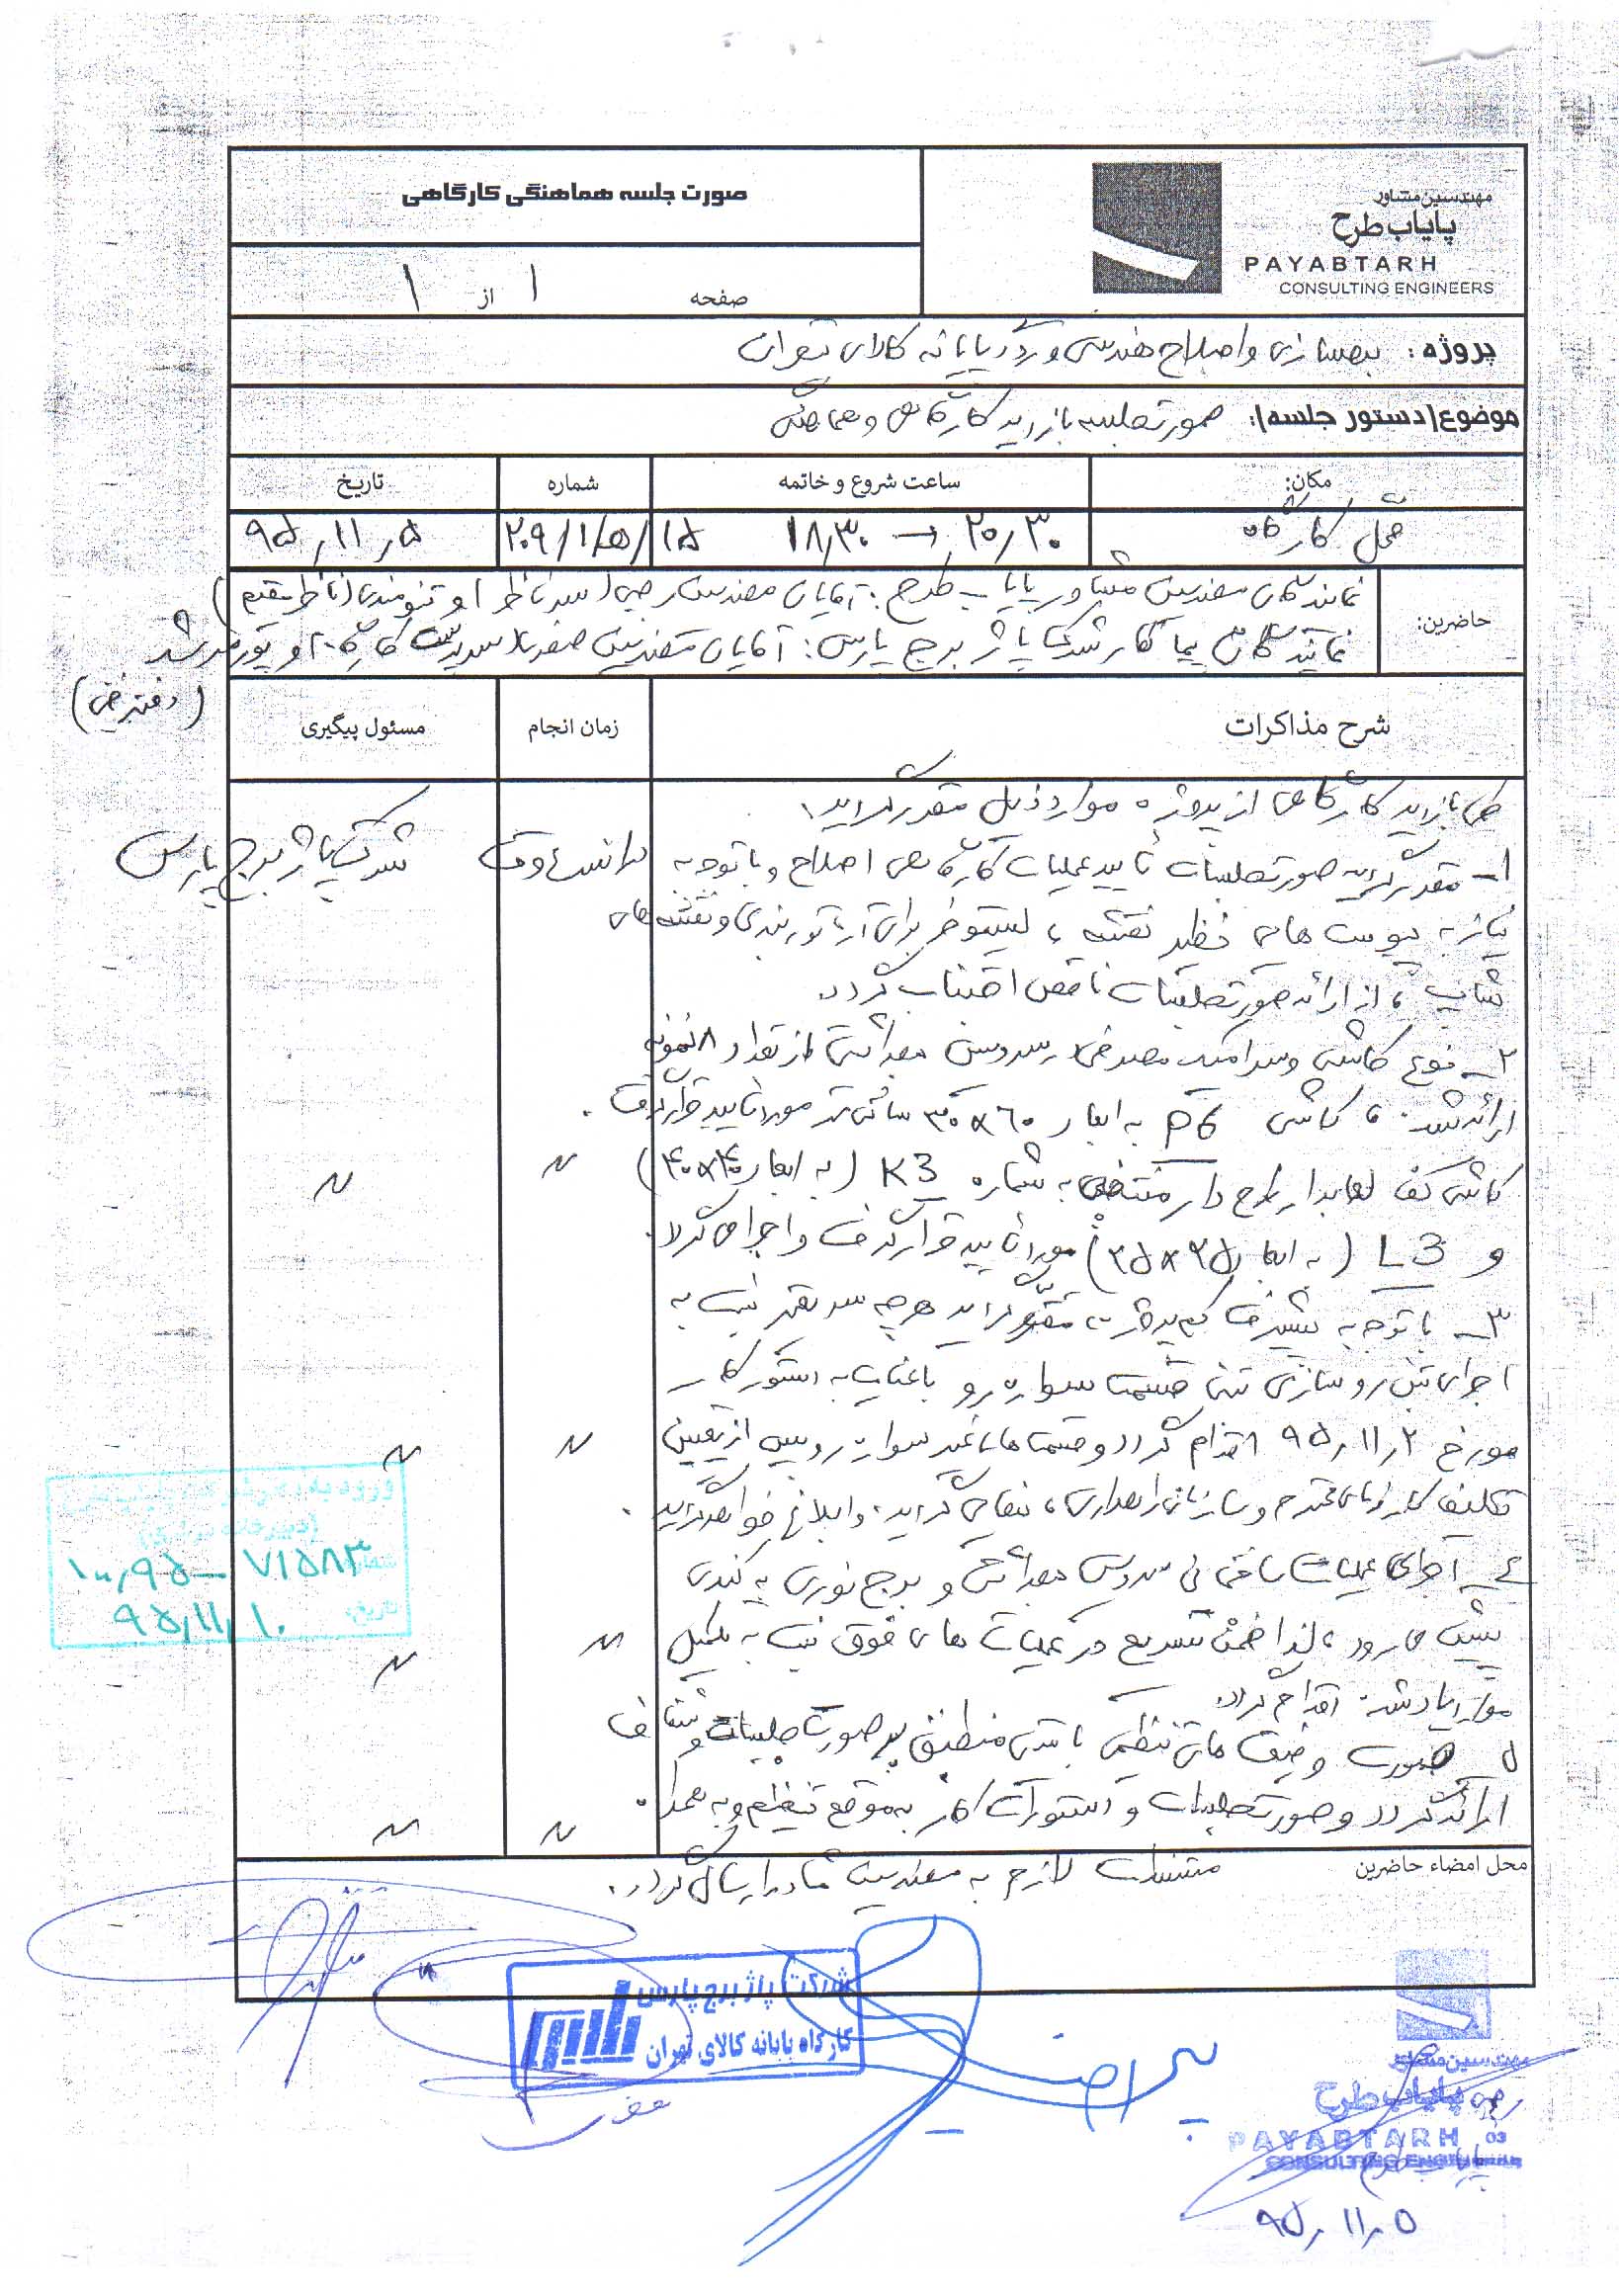 صورت جلسه هماهنگی کارگاهی
مهندسین مشاور
پایاب طرح
PAYABTARH
CONSULTING ENGINEERS
صفحه ۱ از ۱
پروژه: بهسازی و اصلاح هندسی ورودی پایانه کالای تهران
موضوع (دستور جلسه): صورتجلسه بازدید کارگاهی و هماهنگی
مکان: ساعت شروع و خاتمه شماره تاریخ
محل کارگاه ۱۸٫۳۰ → ۲۰٫۳۰ ۲۰۹/۱/ه/۱۵ ۹۵٫۱۱٫۵
حاضرین:
نمایندگان مهندسین مشاور پایاب طرح: آقایان مهندسین رجبی (سرناظر) و تنومندی (ناظر مقیم)
نمایندگان پیمانکار شرکت پاژ برج پارس: آقایان مهندسین صفری (سرپرست کارگاه) و پورمرشد
(دفتر فنی)
شرح مذاکرات زمان انجام مسئول پیگیری
طی بازدید کارگاهی از پروژه موارد ذیل مقرر گردید:
۱- مقرر گردید صورتجلسات تایید عملیات کارگاهی اصلاح و با توجه به در اسرع وقت شرکت پاژ برج پارس
نیاز به پیوست های نظیر نقشه، لیستوفر برای آرماتوربندی و نقشه های
شاپ، از ارائه صورتجلسات ناقص اجتناب گردد.
۲- نوع کاشی و سرامیک مصرفی سرویس بهداشتی از تعداد ۸ نمونه
ارائه شده، کاشی P6 به ابعاد ۳۰×۶۰ سانتی متر مورد تایید قرار گرفت.
کاشی کف لعابدار طرح دار منتخب به شماره K3 (به ابعاد ۴۰×۴۰) 〃 〃
و L3 (به ابعاد ۲۵×۲۵) مورد تایید قرار گرفت و اجرا می گردد.
۳- با توجه به پیشرفت کم پروژه، مقرر گردید هر چه سریعتر نسبت به
اجرای بتن روسازی بتنی قسمت سواره رو با عنایت به دستور کار
مورخ ۹۵٫۱۱٫۲ اقدام گردد و قسمت های غیر سواره رو پس از تعیین 〃 〃
تکلیف کارفرمای محترم و سازمان راهداری، نهایی گردیده و ابلاغ خواهد گردید.
۴- اجرای عملیات ساختمانی سرویس بهداشتی و برج نوری به کندی
پیش می رود، لذا ضمن تسریع در عملیات های فوق نسبت به تکمیل 〃 〃
موارد یاد شده اقدام گردد.
۵ صورت وضعیت های تنظیمی بایستی منطبق بر صورت جلسات و شفاف
ارائه گردد و صورتجلسات و دستورات کار به موقع تنظیم و به همراه 〃 〃
محل امضاء حاضرین مستندات لازم به مهندسین مشاور ارسال گردد.
۱۰٫۹۵-۷۱۵۸۳
تاریخ: ۹۵٫۱۱٫۱۰
شرکت پاژ برج پارس
کارگاه پایانه کالای تهران
مهندسین مشاور
پایاب طرح
PAYABTARH 03
CONSULTING ENGINEERS
رجبی
پایاب طرح
۹۵٫۱۱٫۵